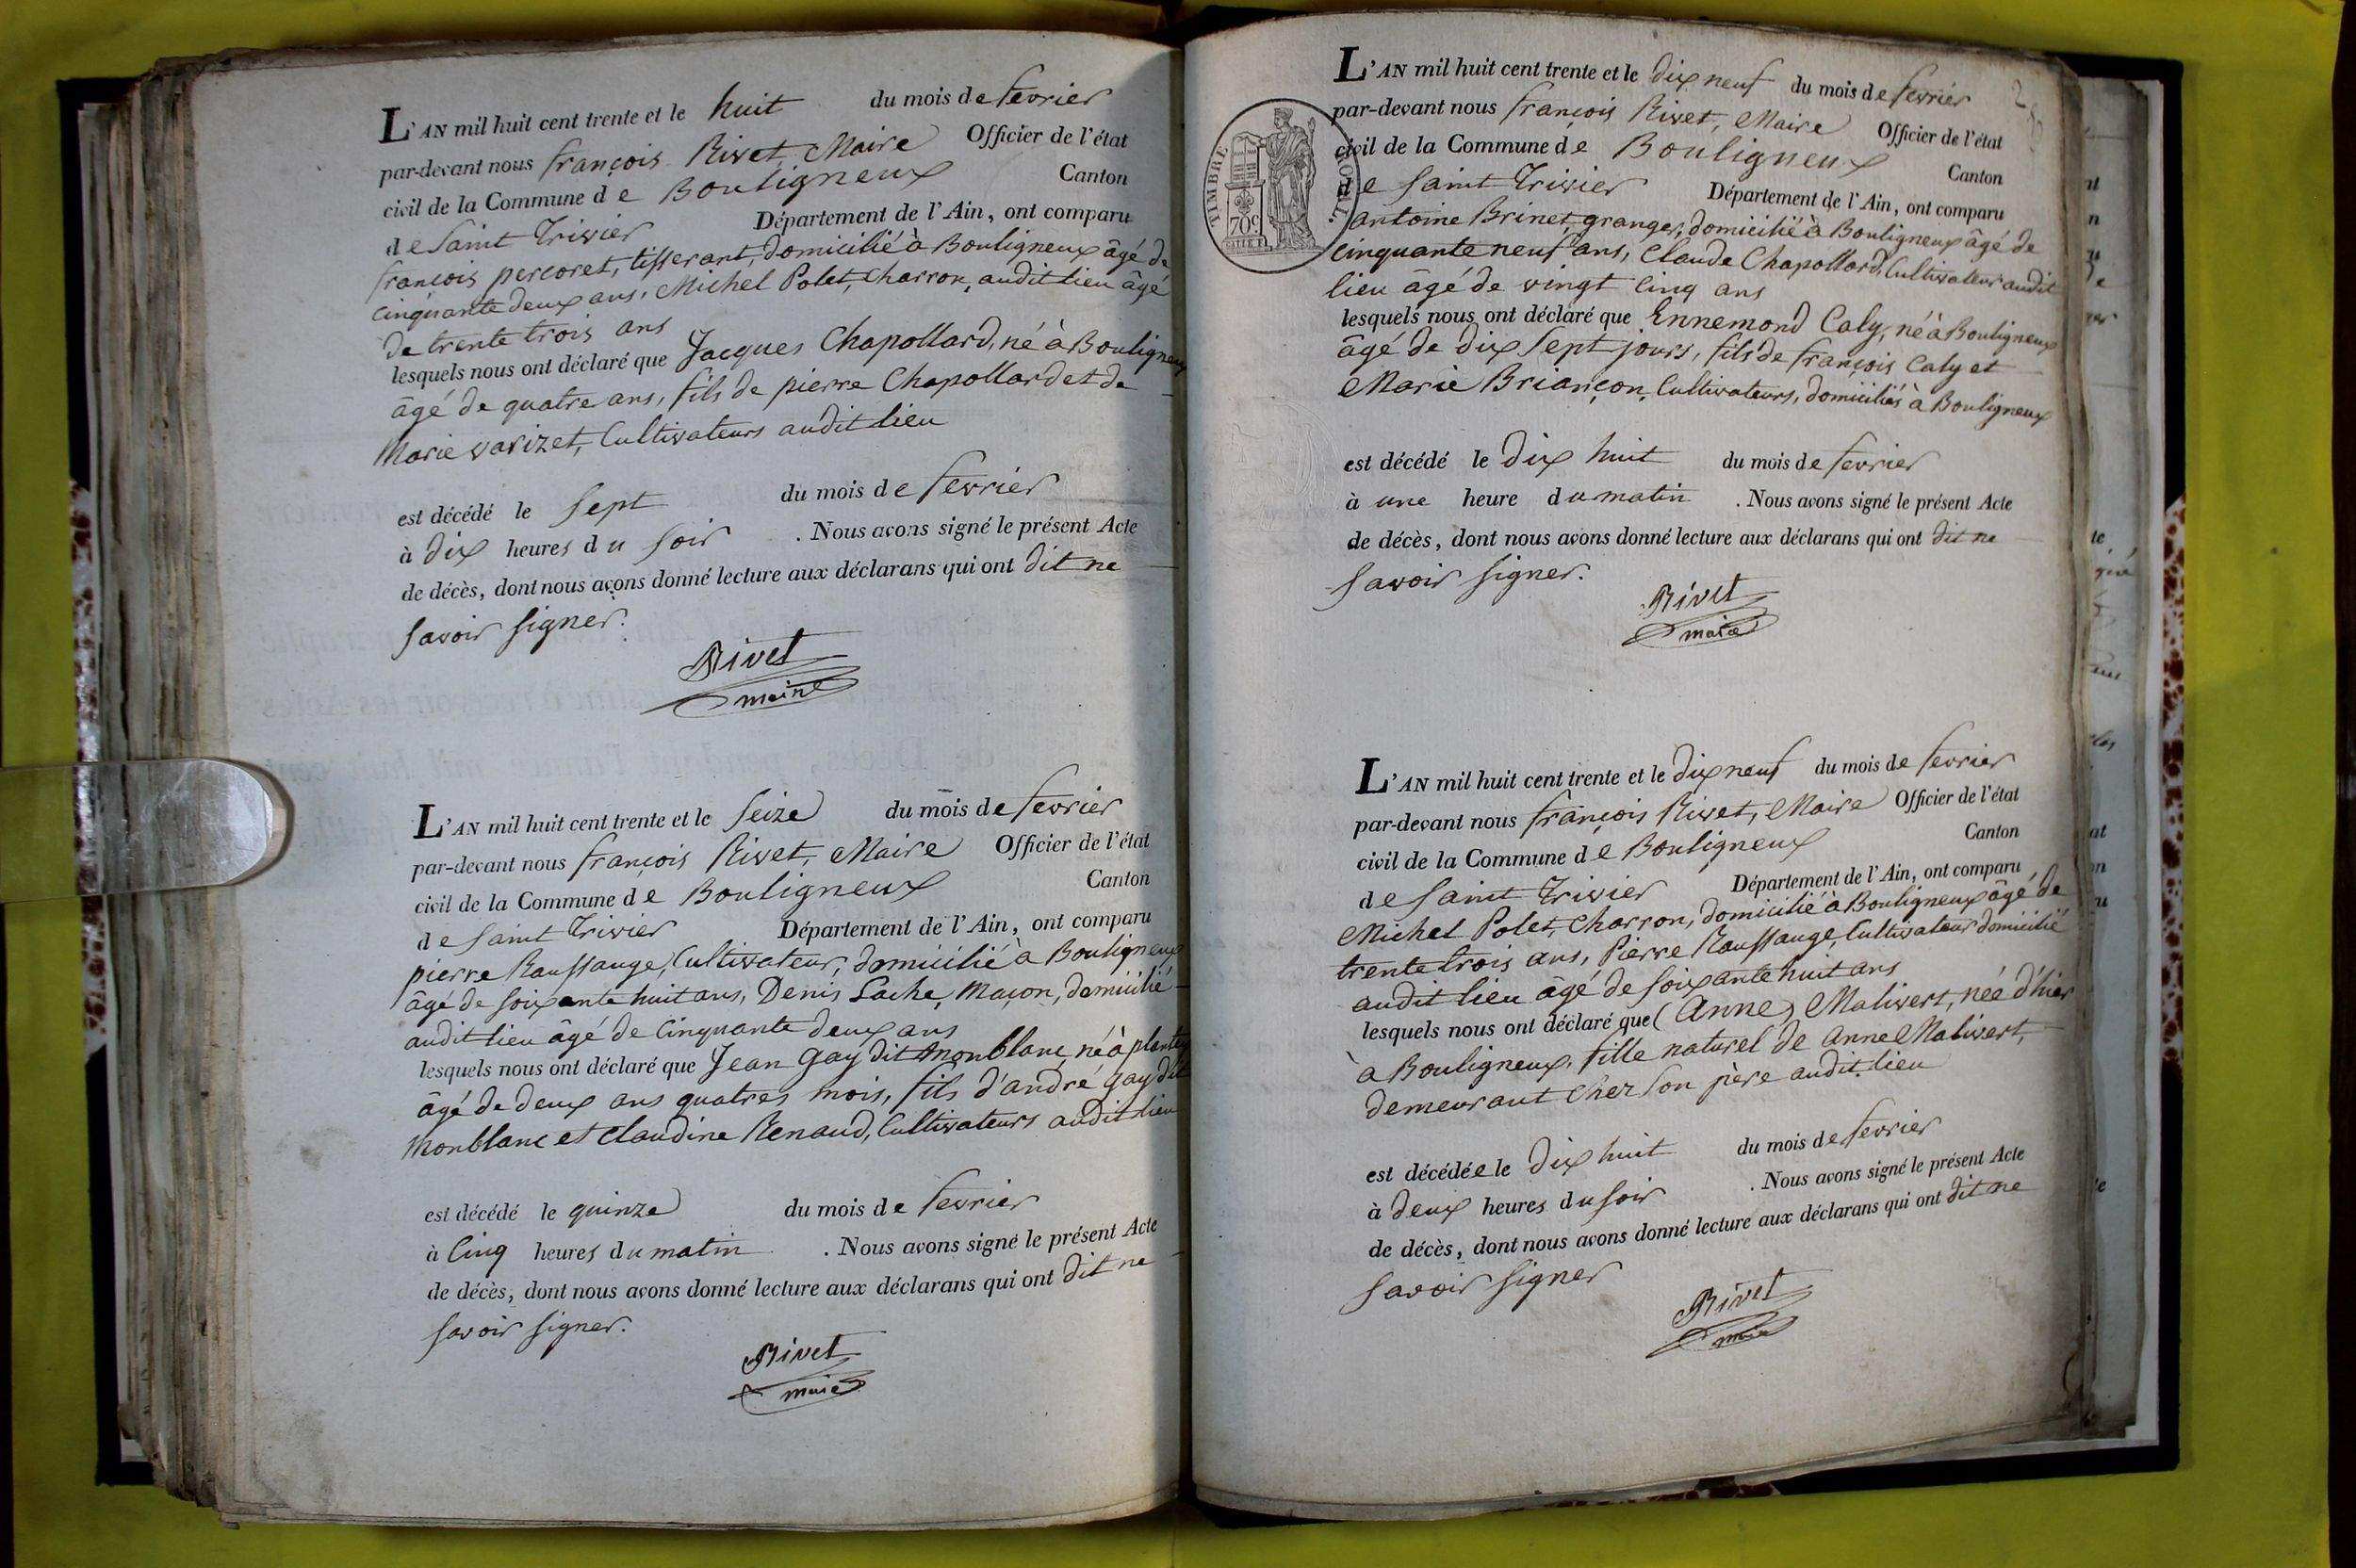 L'AN mil huit cent trente et le huit du mois de fevrier
par-devant nous françois Rivet, Maire Officier de l'état
civil de la Commune de Bouligneux Canton
de Saint Trivier Département de l'Ain, ont comparu
françois percoret, tisserant, domicilié à Bouligneux âgé de
Cinquante deux ans, Michel Polet, Charron, audit lieu âgé
de trente trois ans
lesquels nous ont déclaré que Jacques Chapollard, né à Bouligneux
âgé de quatre ans, fils de pierre Chapollard et de
Marie varizet, Cultivateurs audit lieu
est décédé le Sept du mois de fevrier
à dix heures du Soir . Nous avons signé le présent Acte
de décès, dont nous avons donné lecture aux déclarans qui ont dit ne
Savoir Signer.
Rivet
maire
L'AN mil huit cent trente et le Seize du mois de fevrier
par-devant nous françois Rivet, Maire Officier de l'état
civil de la Commune de Bouligneux Canton
de Saint Trivier Département de l'Ain, ont comparu
pierre Raussange, Cultivateur, domicilié à Bouligneux
âgé de Soixante huit ans, Denis Lache, Maçon, domicilié
audit lieu âgé de Cinquante deux ans
lesquels nous ont déclaré que Jean Gay dit Monblanc né à plantey
âgé de deux ans quatres mois, fils d'andré Gay dit
Monblanc et Claudine Renaud, Cultivateurs audit lieu
est décédé le quinze du mois de fevrier
à Cinq heures du matin . Nous avons signé le présent Acte
de décès, dont nous avons donné lecture aux déclarans qui ont dit ne
Savoir Signer.
Rivet
maire
TIMBRE ROYAL
70c
L'AN mil huit cent trente et le dix neuf du mois de fevrier
par-devant nous françois Rivet, Maire Officier de l'état
civil de la Commune de Bouligneux Canton
de Saint Trivier Département de l'Ain, ont comparu
antoine Brinet, granger, domicilié à Bouligneux âgé de
Cinquante neuf ans, Claude Chapollard, Cultivateur audit
lieu âgé de vingt Cinq ans
lesquels nous ont déclaré que Ennemond Caly, né à Bouligneux
âgé de dix Sept jours, fils de françois Caly et
Marie Briançon, Cultivateurs, domiciliés à Bouligneux
est décédé le dix huit du mois de fevrier
à une heure du matin . Nous avons signé le présent Acte
de décès, dont nous avons donné lecture aux déclarans qui ont dit ne
Savoir Signer.
Rivet
maire
L'AN mil huit cent trente et le dix neuf du mois de fevrier
par-devant nous françois Rivet, Maire Officier de l'état
civil de la Commune de Bouligneux Canton
de Saint Trivier Département de l'Ain, ont comparu
Michel Polet, Charron, domicilié à Bouligneux âgé de
trente trois ans, Pierre Raussange, Cultivateur domicilié
audit lieu âgé de Soixante huit ans
lesquels nous ont déclaré que (Anne) Malivert, née d'hier
à Bouligneux, fille naturel de Anne Malivert,
demeurant Chez Son père audit lieu
est décédée le dix huit du mois de fevrier
à deux heures du Soir . Nous avons signé le présent Acte
de décès, dont nous avons donné lecture aux déclarans qui ont dit ne
Savoir Signer
Rivet
maire